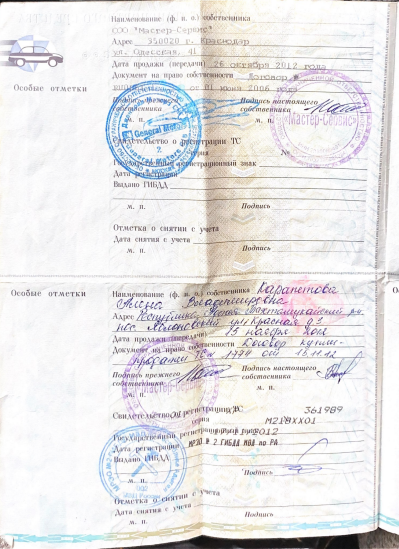 Особые отметки
Наименование (ф. и. о.) собственника
ООО "Мастер-Сервис"
Адрес 350020 г. Краснодар
ул. Одесская, 41
Дата продажи (передачи) 26 октября 2012 года
Документ на право собственности Договор №
от 01 июня 2006 года
Подпись прежнего собственника
Подпись настоящего собственника
м. п.
м. п.
General Motors
"Мастер-Сервис"
Свидетельство о регистрации ТС
серия №
Государственный регистрационный знак
Дата регистрации
Выдано ГИБДД
м. п. Подпись
Отметка о снятии с учета
Дата снятия с учета
м. п. Подпись
Особые отметки
Наименование (ф. и. о.) собственника Карапетова
Владимировна
Адрес Республика Адыгея Тахтамукайский р-н
ул. Красная
Дата продажи (передачи) 15 ноября 2012
Документ на право собственности Договор купли-
продажи 1774 от 15.11.12
Подпись прежнего собственника
Подпись настоящего собственника
м. п.
м. п.
Свидетельство о регистрации ТС
серия 361989
М218ХХ01
Государственный регистрационный знак
Дата регистрации 2012
Выдано ГИБДД МРЭО № 2 ГИБДД МВД по РА
м. п. Подпись
Отметка о снятии с учета
Дата снятия с учета
м. п. Подпись